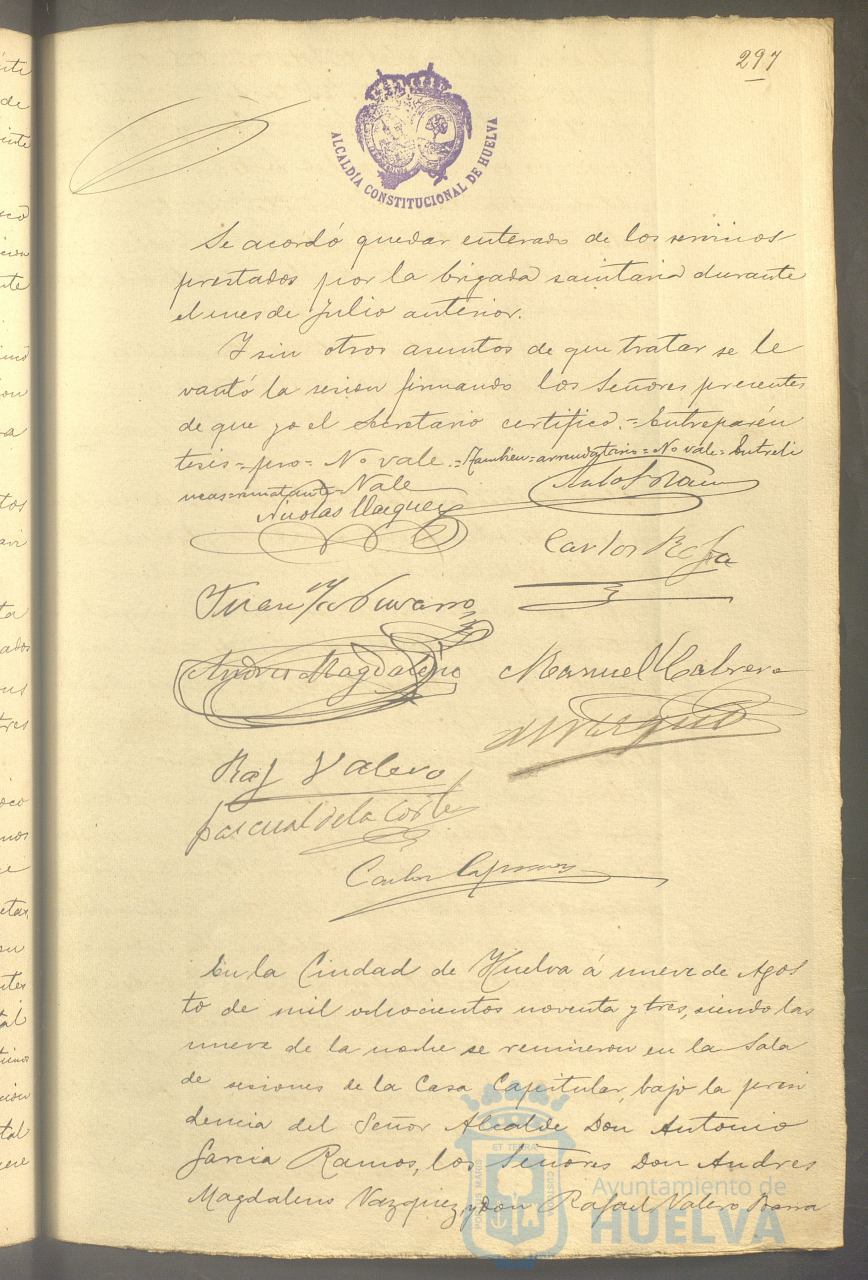 297
ALCALDÍA CONSTITUCIONAL DE HUELVA
Se acordó quedar enterado de los servicios
prestados por la brigada sanitaria durante
el mes de Julio anterior.
Y sin otros asuntos de que tratar se le
vantó la sesion firmando los Señores presentes
de que yo el Secretario certifico.=Entreparén
tesis=pro=No vale.=Tambien=arrendatario=No vale=Entreli
neas=rematante=Vale
Nicolas Vazquez
Carlos
Juan Navarro
Andres Magdaleno
Manuel Cabrera
Raf Valero
Pascual de la Corte
Carlos
En la Ciudad de Huelva á nueve de Agos
to de mil ochocientos noventa y tres, siendo las
nueve de la noche se reunieron en la Sala
de sesiones de la Casa Capitular, bajo la presi
dencia del Señor Alcalde Don Antonio
Garcia Ramos, los Señores Don Andres
Magdaleno Vazquez, y Don Rafael Valero Barra
PORTUS MARIS ET TERRAE CUSTODIA
Ayuntamiento de
HUELVA